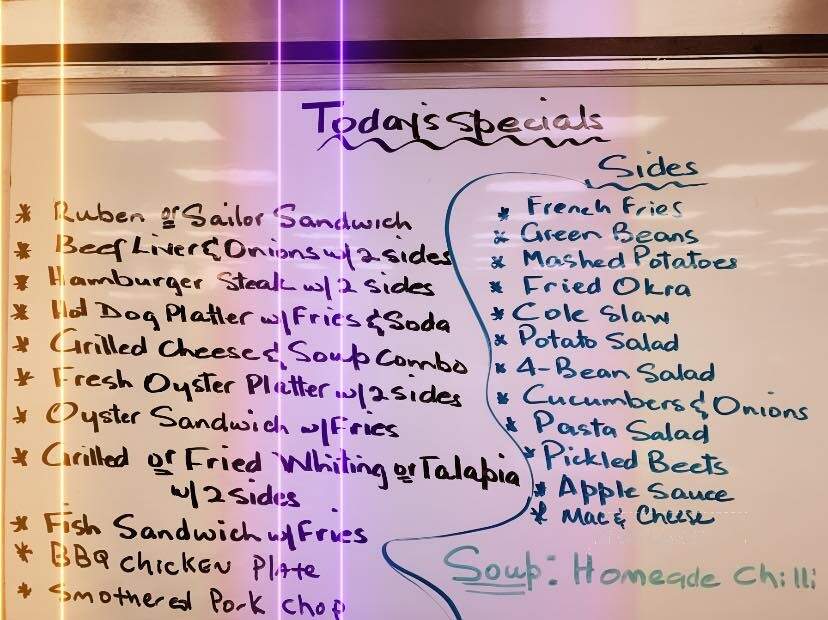 Today's Specials
* Ruben or Sailor Sandwich
* Beef Liver & Onions w/ 2 sides
* Hamburger Steak w/ 2 sides
* Hot Dog Platter w/ Fries & Soda
* Grilled Cheese & Soup Combo
* Fresh Oyster Platter w/ 2 sides
* Oyster Sandwich w/ Fries
* Grilled or Fried Whiting or Talapia
w/ 2 sides
* Fish Sandwich w/ Fries
* BBQ Chicken Plate
* Smothered Pork Chop
Sides
* French Fries
* Green Beans
* Mashed Potatoes
* Fried Okra
* Cole Slaw
* Potato Salad
* 4-Bean Salad
* Cucumbers & Onions
* Pasta Salad
* Pickled Beets
* Apple Sauce
* Mac & Cheese
Soup: Homeade Chilli